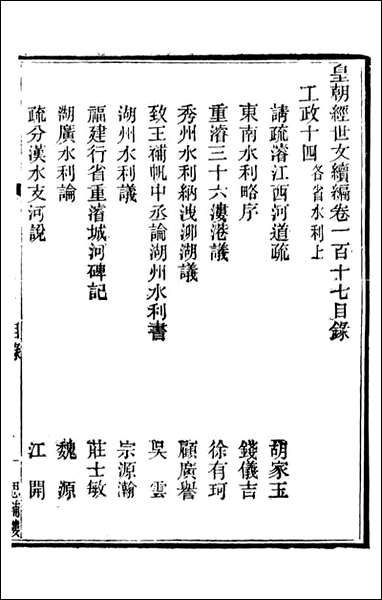 皇朝經世文續編卷一百十七目錄
工政十四 各省水利上
請疏濬江西河道疏 胡家玉
東南水利略序 錢儀吉
重濬三十六漊港議 徐有珂
秀州水利納洩泖湖議 顧廣譽
致王補帆中丞論湖州水利書 吳雲
湖州水利議 宗源瀚
福建行省重濬城河碑記 莊士敏
湖廣水利論 魏源
疏分漢水支河說 江開
目錄 一 思補樓